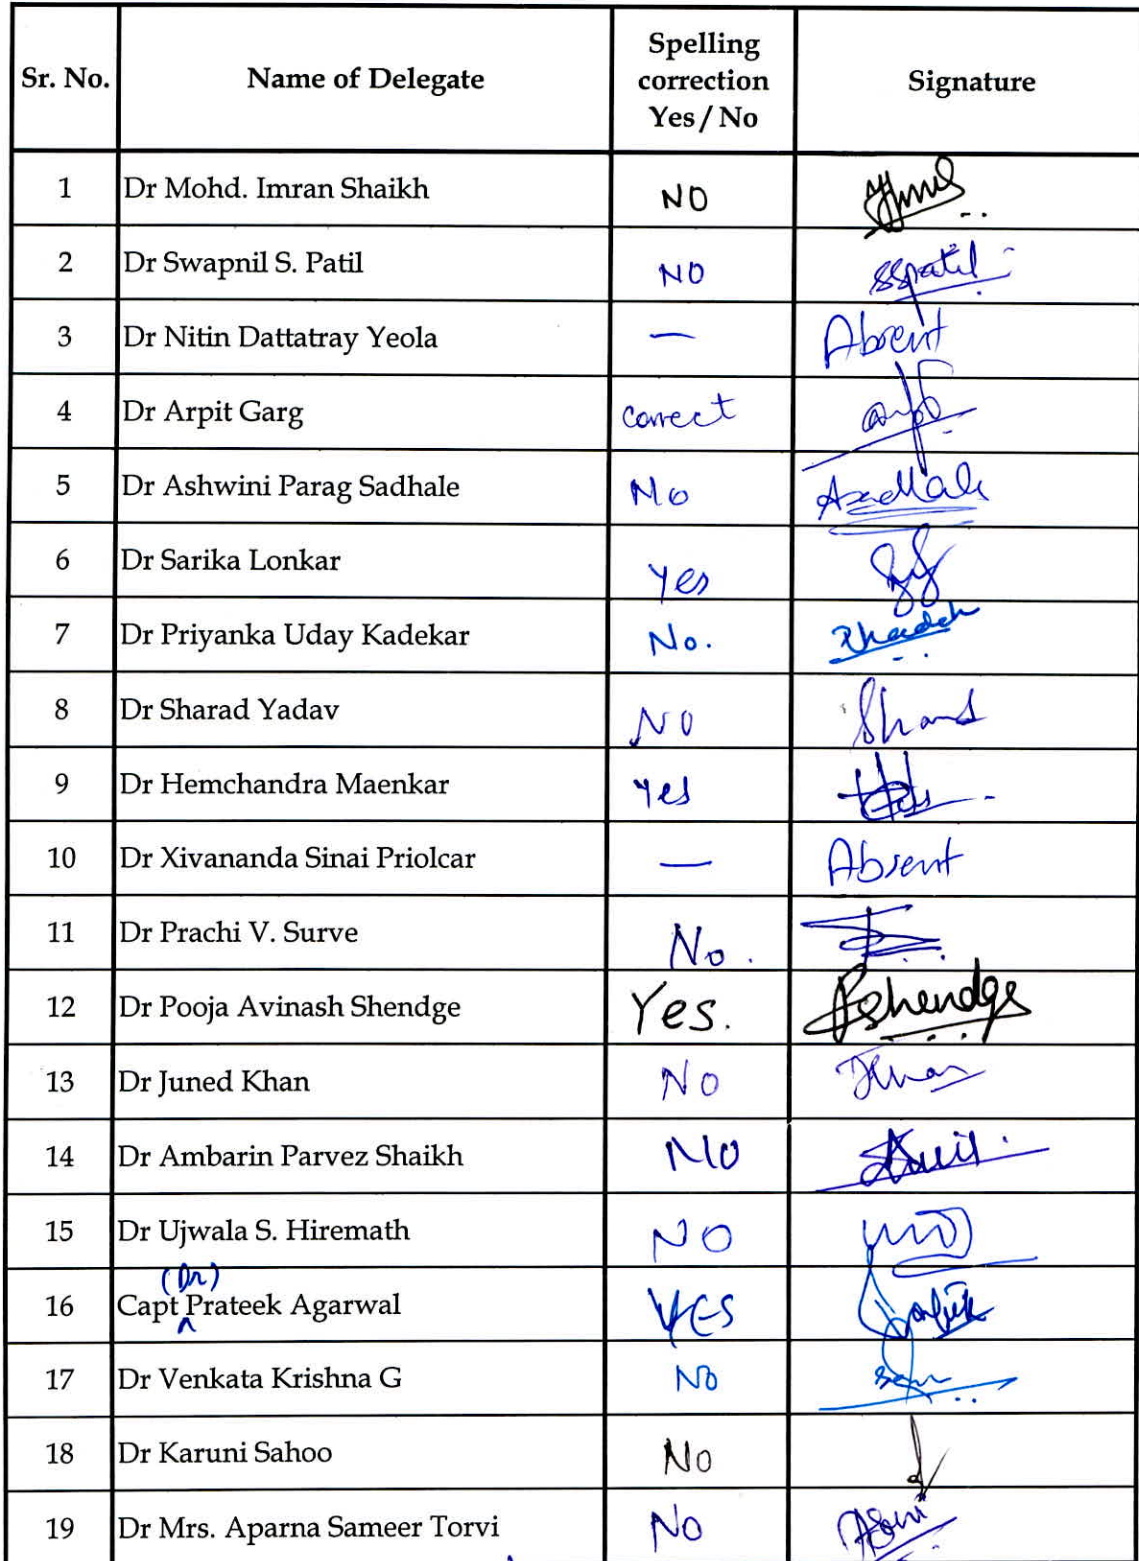 Sr. No. Name of Delegate Spelling correction Yes / No Signature
1 Dr Mohd. Imran Shaikh NO
2 Dr Swapnil S. Patil NO SSpatil
3 Dr Nitin Dattatray Yeola — Absent
4 Dr Arpit Garg correct
5 Dr Ashwini Parag Sadhale No
6 Dr Sarika Lonkar Yes
7 Dr Priyanka Uday Kadekar No.
8 Dr Sharad Yadav NO
9 Dr Hemchandra Maenkar Yes
10 Dr Xivananda Sinai Priolcar — Absent
11 Dr Prachi V. Surve No.
12 Dr Pooja Avinash Shendge Yes. Pshendge
13 Dr Juned Khan NO
14 Dr Ambarin Parvez Shaikh NO
15 Dr Ujwala S. Hiremath NO
(Dr)
16 Capt Prateek Agarwal YES
17 Dr Venkata Krishna G No
18 Dr Karuni Sahoo No
19 Dr Mrs. Aparna Sameer Torvi No